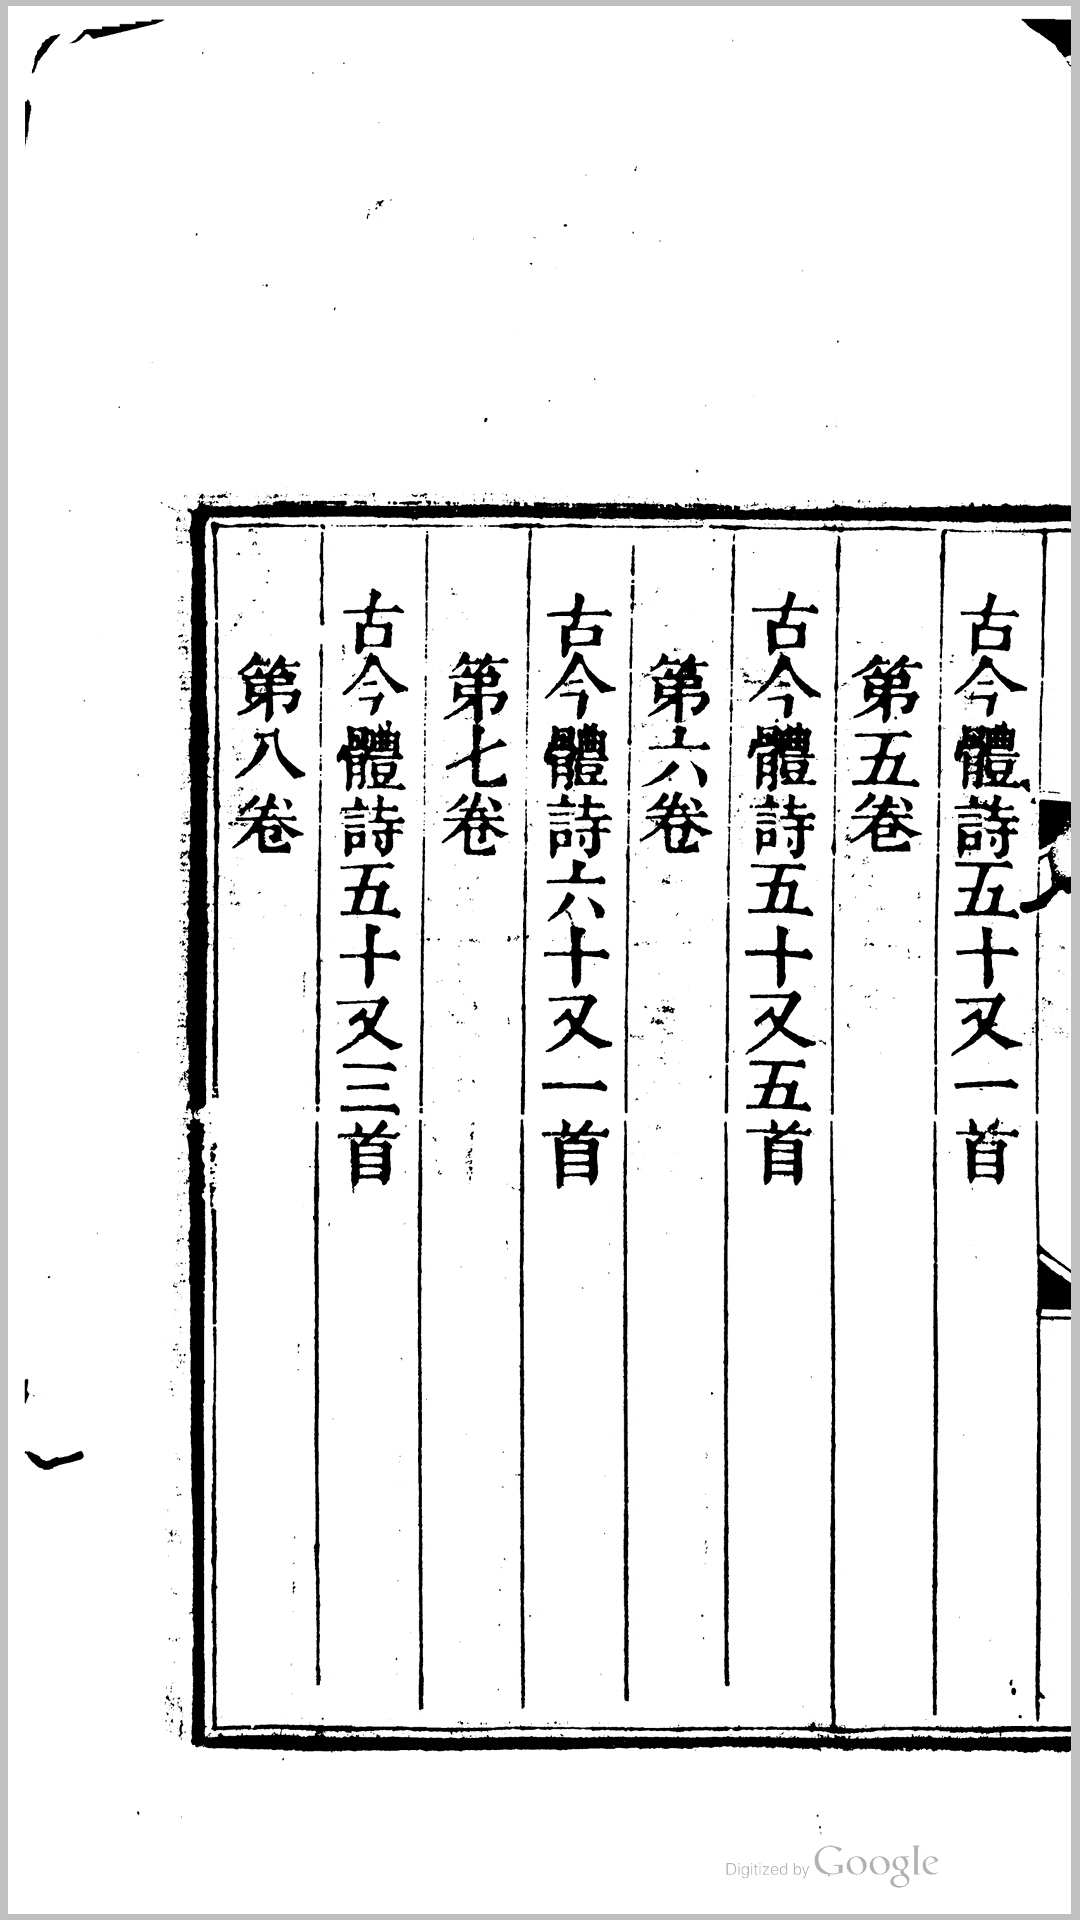 古今體詩五十又一首
第五卷
古今體詩五十又五首
第六卷
古今體詩六十又一首
第七卷
古今體詩五十又三首
第八卷
Digitized by Google